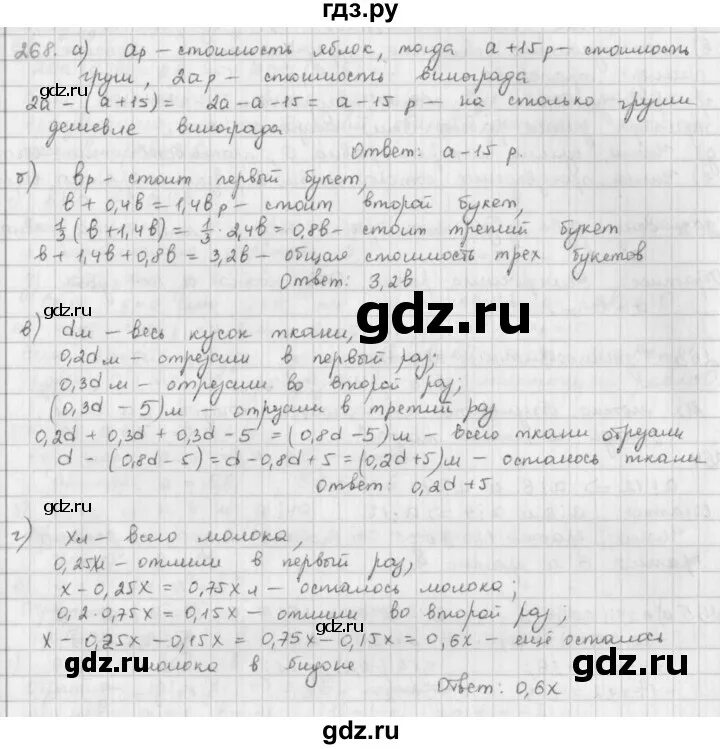 гдз.ру
268. а) ар – стоимость яблок, тогда а+15р – стоимость
груш, 2ар – стоимость винограда
2а – (а+15) = 2а–а–15 = а–15 р – на столько груши
дешевле винограда
Ответ: а–15 р.
gdz.ru
gdz.ru
б) вр – стоит первый букет,
в + 0,4в = 1,4в р – стоит второй букет,
1/3 (в+1,4в) = 1/3 · 2,4в = 0,8в – стоит третий букет
в + 1,4в + 0,8в = 3,2в – общая стоимость трех букетов
Ответ: 3,2в
gdz.ru
gdz.ru
в) dм – весь кусок ткани,
0,2dм – отрезали в первый раз;
0,3dм – отрезали во второй раз;
(0,3d – 5)м – отрезали в третий раз
0,2d + 0,3d + 0,3d – 5 = (0,8d –5)м – всего ткани отрезали
d – (0,8d – 5) = d – 0,8d + 5 = (0,2d+5)м – осталось ткани
Ответ: 0,2d+5
gdz.ru
gdz.ru
г) хл – всего молока,
0,25х – отлили в первый раз,
х – 0,25х = 0,75х л – осталось молока;
0,2 · 0,75х = 0,15х – отлили во второй раз;
х – 0,25х – 0,15х = 0,75х – 0,15х = 0,6х – ещё осталось
молока в бидоне
Ответ: 0,6х
gdz.ru
gdz.ru
gdz.ru
gdz.ru
gdz.ru